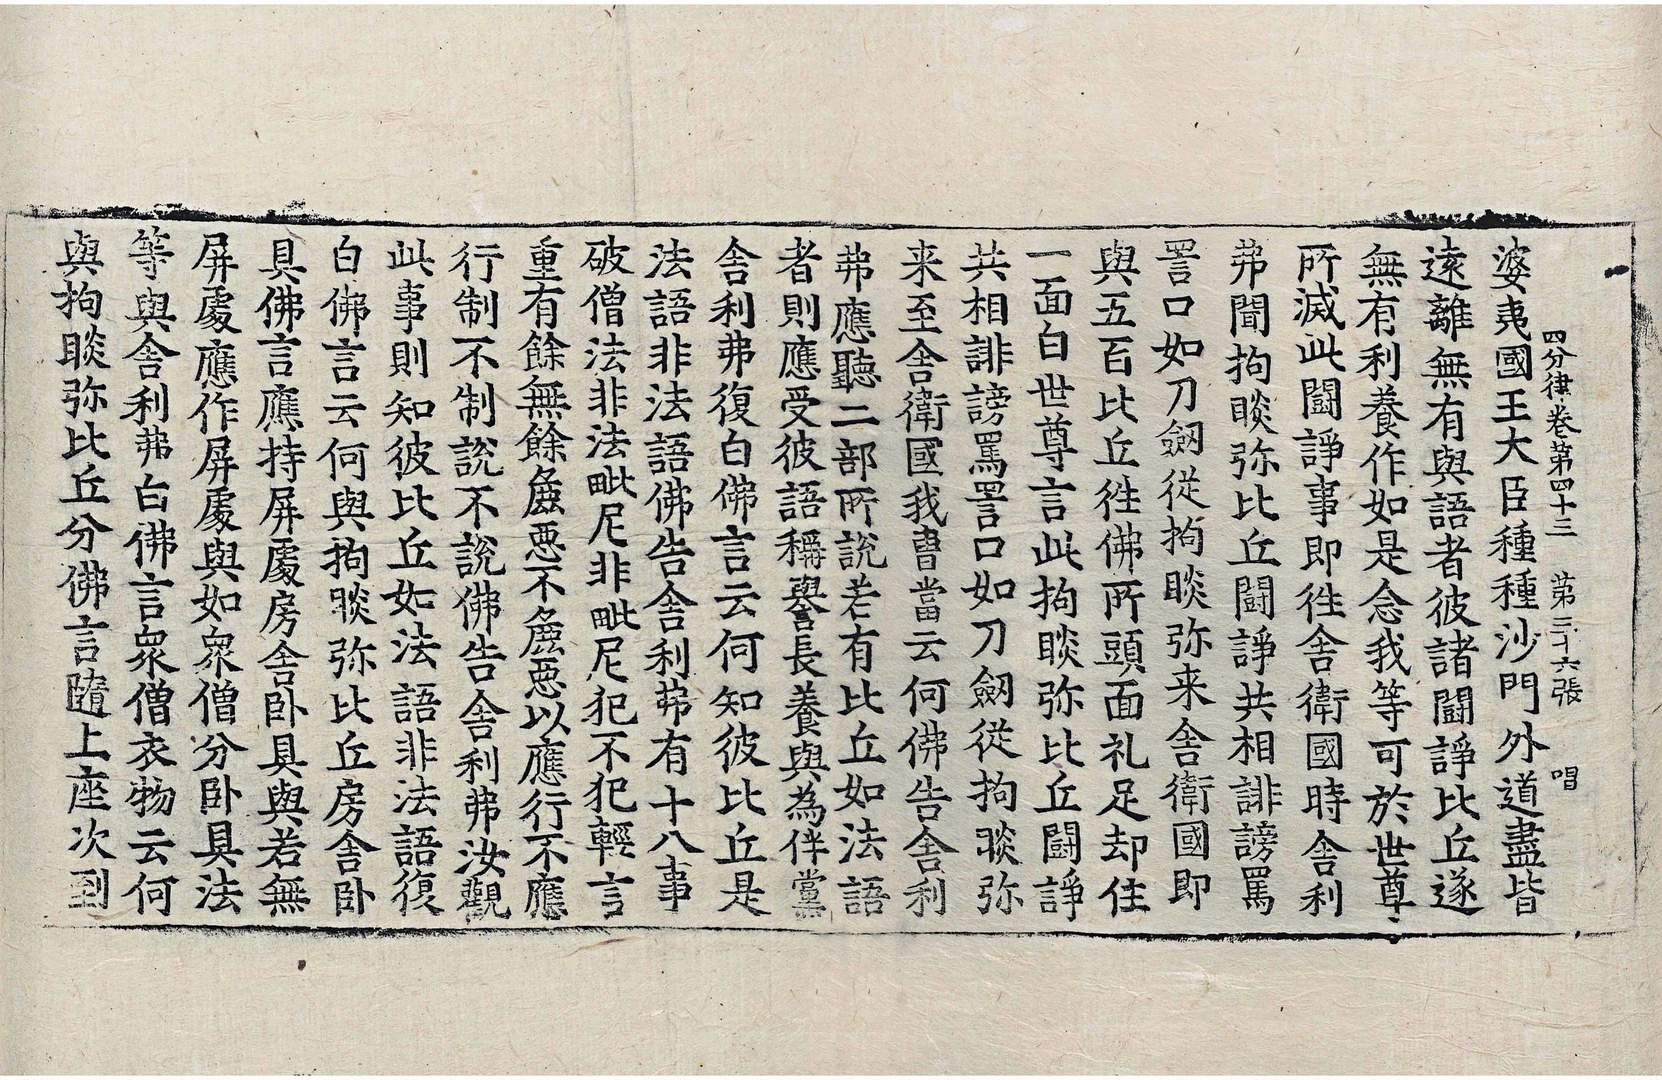 四分律卷第四十三 第三十六張 唱
婆夷國王大臣種種沙門外道盡皆
遠離無有與語者彼諸鬪諍比丘遂
無有利養作如是念我等可於世尊
所滅此鬪諍事即徃舍衛國時舍利
弗聞拘睒弥比丘鬪諍共相誹謗罵
詈口如刀劔従拘睒弥来舍衛國即
與五百比丘徃佛所頭面礼足却住
一面白世尊言此拘睒弥比丘鬪諍
共相誹謗罵詈口如刀劔従拘睒弥
来至舍衛國我曹當云何佛告舍利
弗應聽二部所說若有比丘如法語
者則應受彼語稱譽長養與為伴黨
舍利弗復白佛言云何知彼比丘是
法語非法語佛告舍利弗有十八事
破僧法非法毗尼非毗尼犯不犯輕
重有餘無餘麁惡不麁惡以應行不應
行制不制說不說佛告舍利弗汝觀
此事則知彼比丘如法語非法語復
白佛言云何與拘睒弥比丘房舍卧
具佛言應持屏處房舍卧具與若無
屏處應作屏處與如衆僧分卧具法
等與舍利弗白佛言衆僧衣物云何
與拘睒弥比丘分佛言隨上座次到